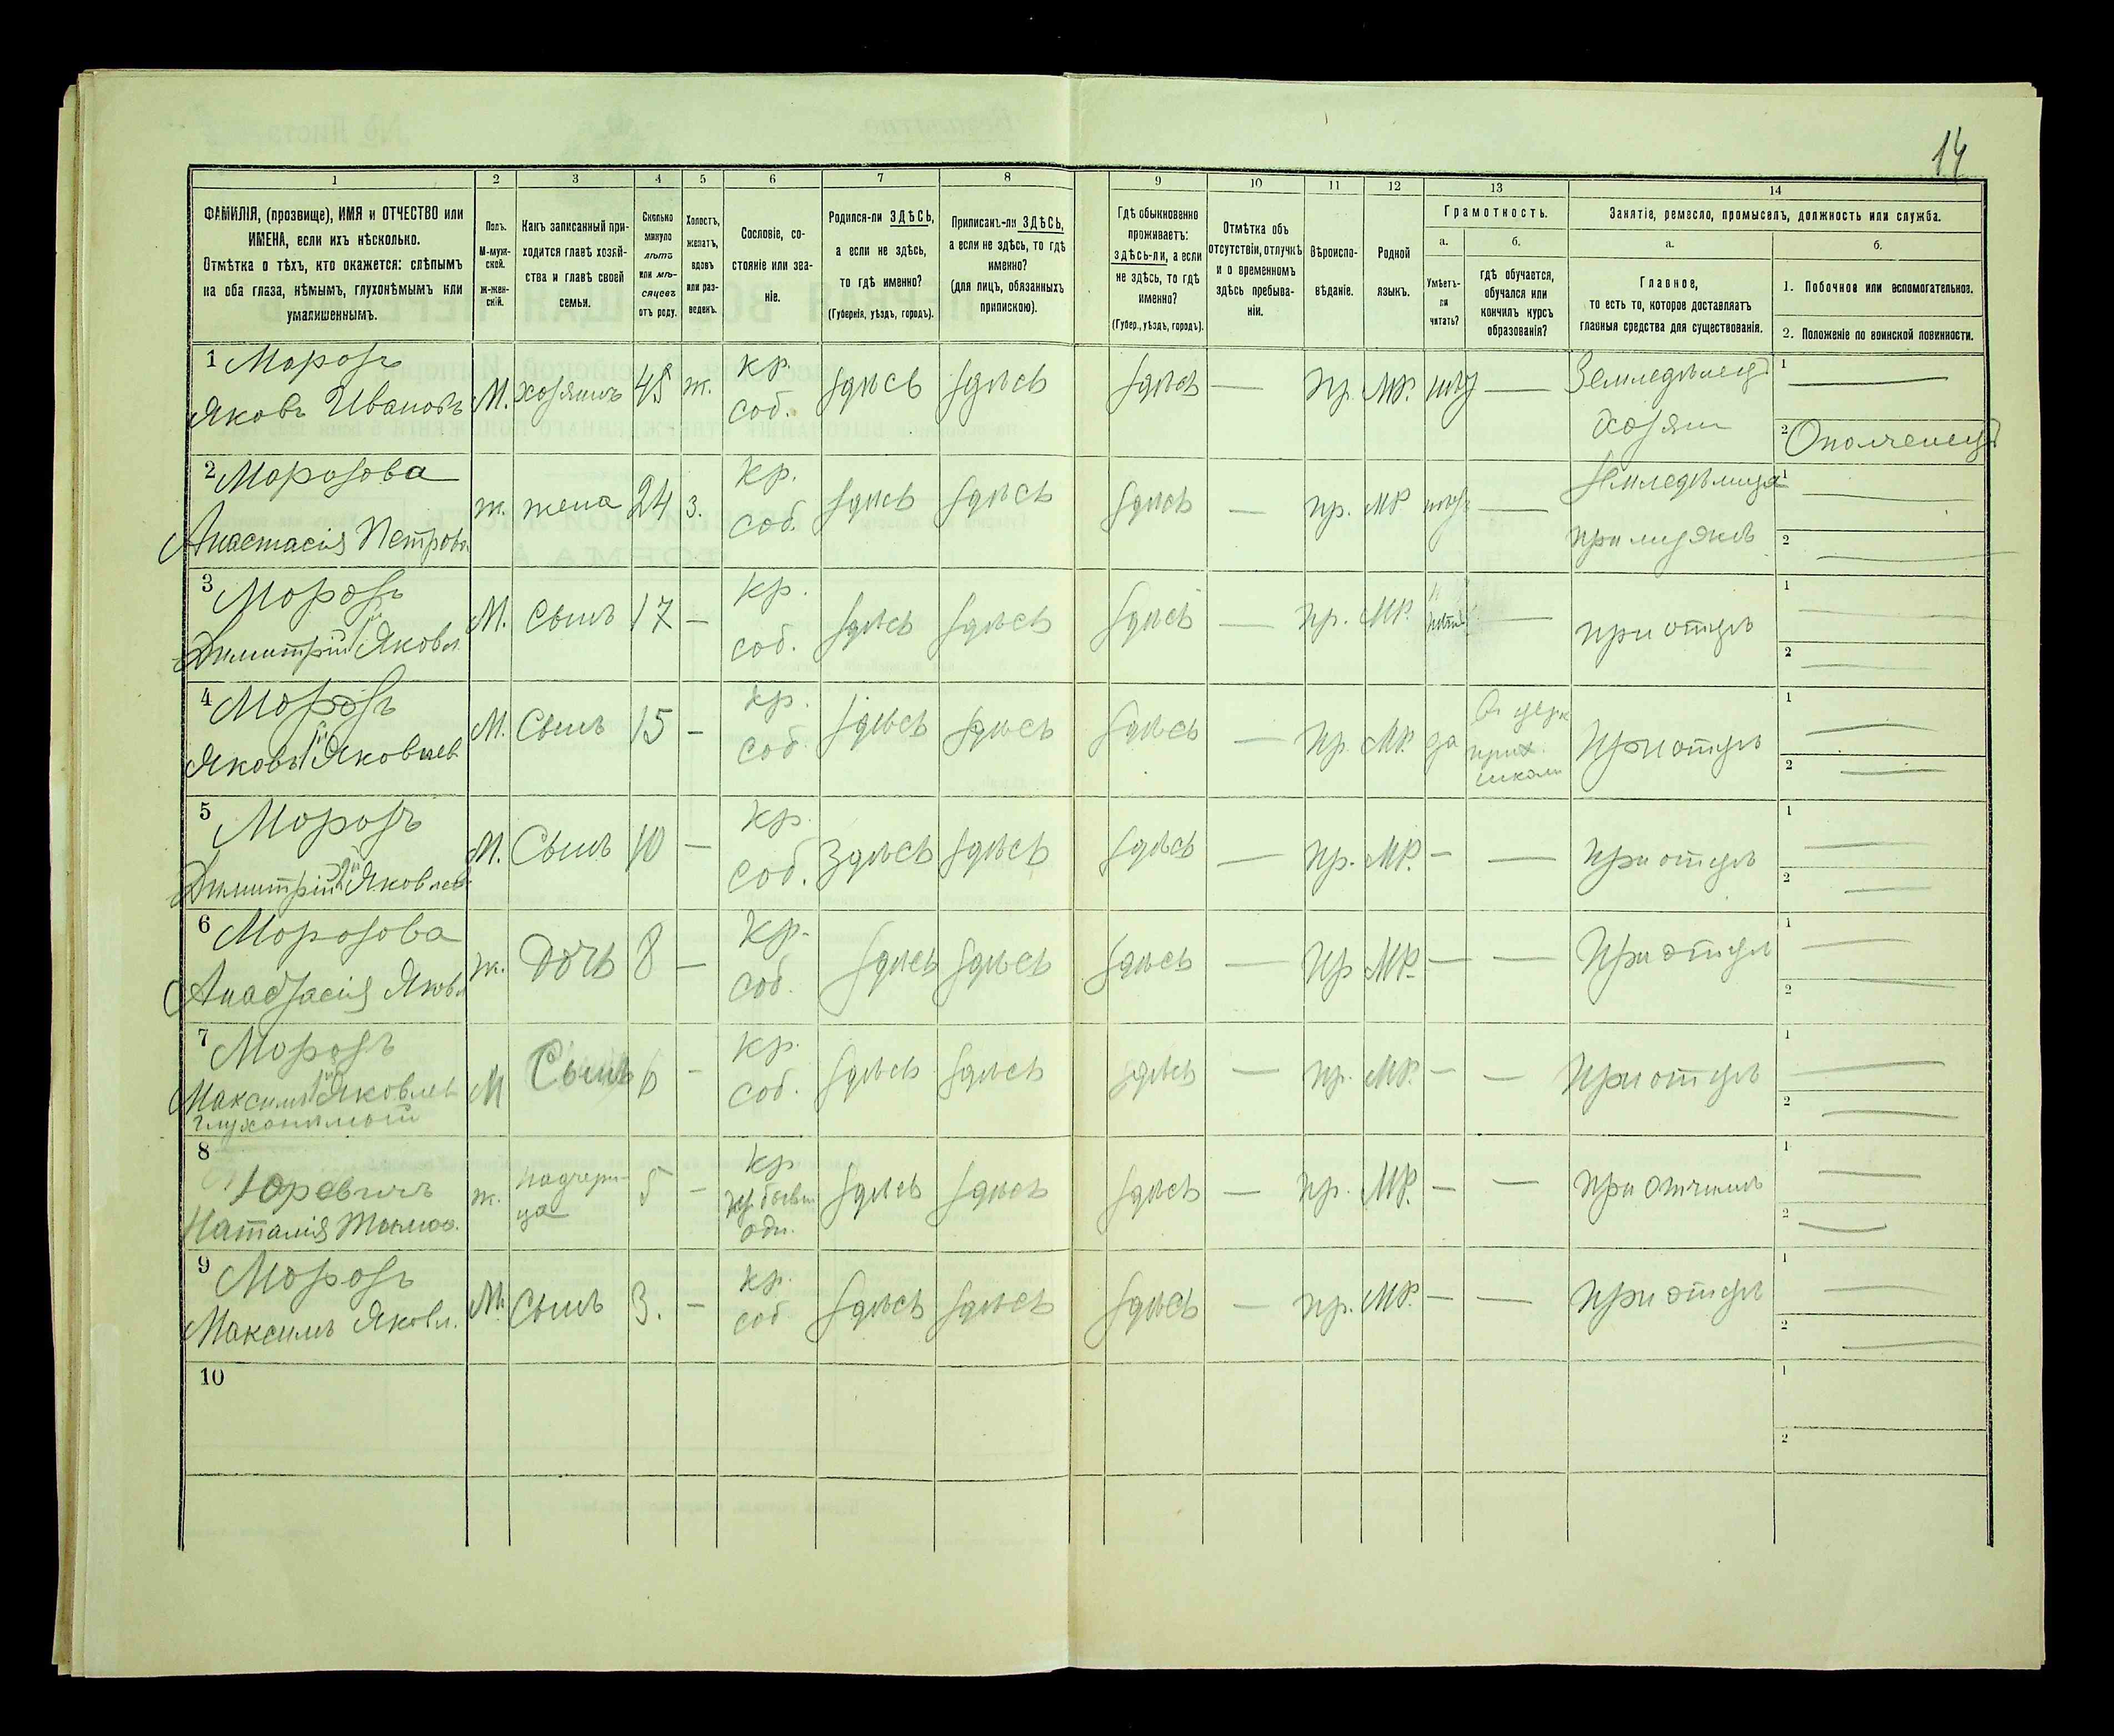 14
1 2 3 4 5 6 7 8 9 10 11 12 13 14
ФАМИЛІЯ, (прозвище), ИМЯ и ОТЧЕСТВО или
ИМЕНА, если ихъ нѣсколько.
Отмѣтка о тѣхъ, кто окажется: слѣпымъ
на оба глаза, нѣмымъ, глухонѣмымъ или
умалишеннымъ.
Полъ.
М-муж-
ской.
Ж-жен-
скій.
Какъ записанный при-
ходится главѣ хозяй-
ства и главѣ своей
семьи.
Сколько
минуло
лѣтъ
или мѣ-
сяцевъ
отъ роду.
Холостъ,
женатъ,
вдовъ
или раз-
веденъ.
Сословіе, со-
стояніе или зва-
ніе.
Родился-ли ЗДѢСЬ,
а если не здѣсь,
то гдѣ именно?
(Губернія, уѣздъ, городъ).
Приписанъ-ли ЗДѢСЬ,
а если не здѣсь, то гдѣ
именно?
(для лицъ, обязанныхъ
припискою).
Гдѣ обыкновенно
проживаетъ:
здѣсь-ли, а если
не здѣсь, то гдѣ
именно?
(Губер., уѣздъ, городъ).
Отмѣтка объ
отсутствіи, отлучкѣ
и о временномъ
здѣсь пребыва-
ніи.
Вѣроиспо-
вѣданіе.
Родной
языкъ.
Грамотность.
а.
Умѣетъ-
ли
читать?
б.
гдѣ обучается,
обучался или
кончилъ курсъ
образованія?
Занятіе, ремесло, промыселъ, должность или служба.
а.
Главное,
то есть то, которое доставляетъ
главныя средства для существованія.
б.
1. Побочное или вспомогательное.
2. Положеніе по воинской повинности.
1 Морозъ
Яковъ Ивановъ
М. хозяинъ 45 ж. кр.
соб. здѣсь здѣсь здѣсь — пр. мр. — Земледѣлецъ
хозяин
1 —
2 Ополченецъ
2 Морозова
Анастасія Петрова
ж. жена 24 з. кр.
соб. здѣсь здѣсь здѣсь — пр. мр — Земледѣлица
при мужѣ
1 —
2 —
3 Морозъ
Димитрій 1й Яковл.
М. Сынъ 17 — кр.
соб. здѣсь здѣсь здѣсь — пр. мр. — при отцѣ
1 —
2 —
4 Морозъ
Яковъ 1й Яковлев
М. Сынъ 15 — кр.
соб. здѣсь здѣсь здѣсь — пр. мр. да
В церк
прих.
школѣ
При отцѣ
1 —
2 —
5 Морозъ
Димитрій 2й Яковлев
М. Сынъ 10 — кр.
соб. Здѣсь здѣсь здѣсь — пр. мр. — — при отцѣ
1 —
2 —
6 Морозова
Анастасія Яковл
ж. Дочь 8 — Кр.
соб. здѣсь здѣсь здѣсь — пр мр. — — При отцѣ
1 —
2 —
7 Морозъ
Максимъ 1й Яковлев
глухонѣмой
М Сынъ 6 — кр.
соб. здѣсь здѣсь здѣсь — пр. мр. — — При отцѣ
1 —
2 —
8
Юревичъ
Наталія
ж. падчери-
ца
5 — кр
здѣсь здѣсь здѣсь — пр. мр. — — при отчимѣ
1 —
2 —
9 Морозъ
Максимъ Яковл.
М. Сынъ 3. — кр.
соб здѣсь здѣсь здѣсь — пр. мр. — — при отцѣ
1 —
2 —
10
1
2